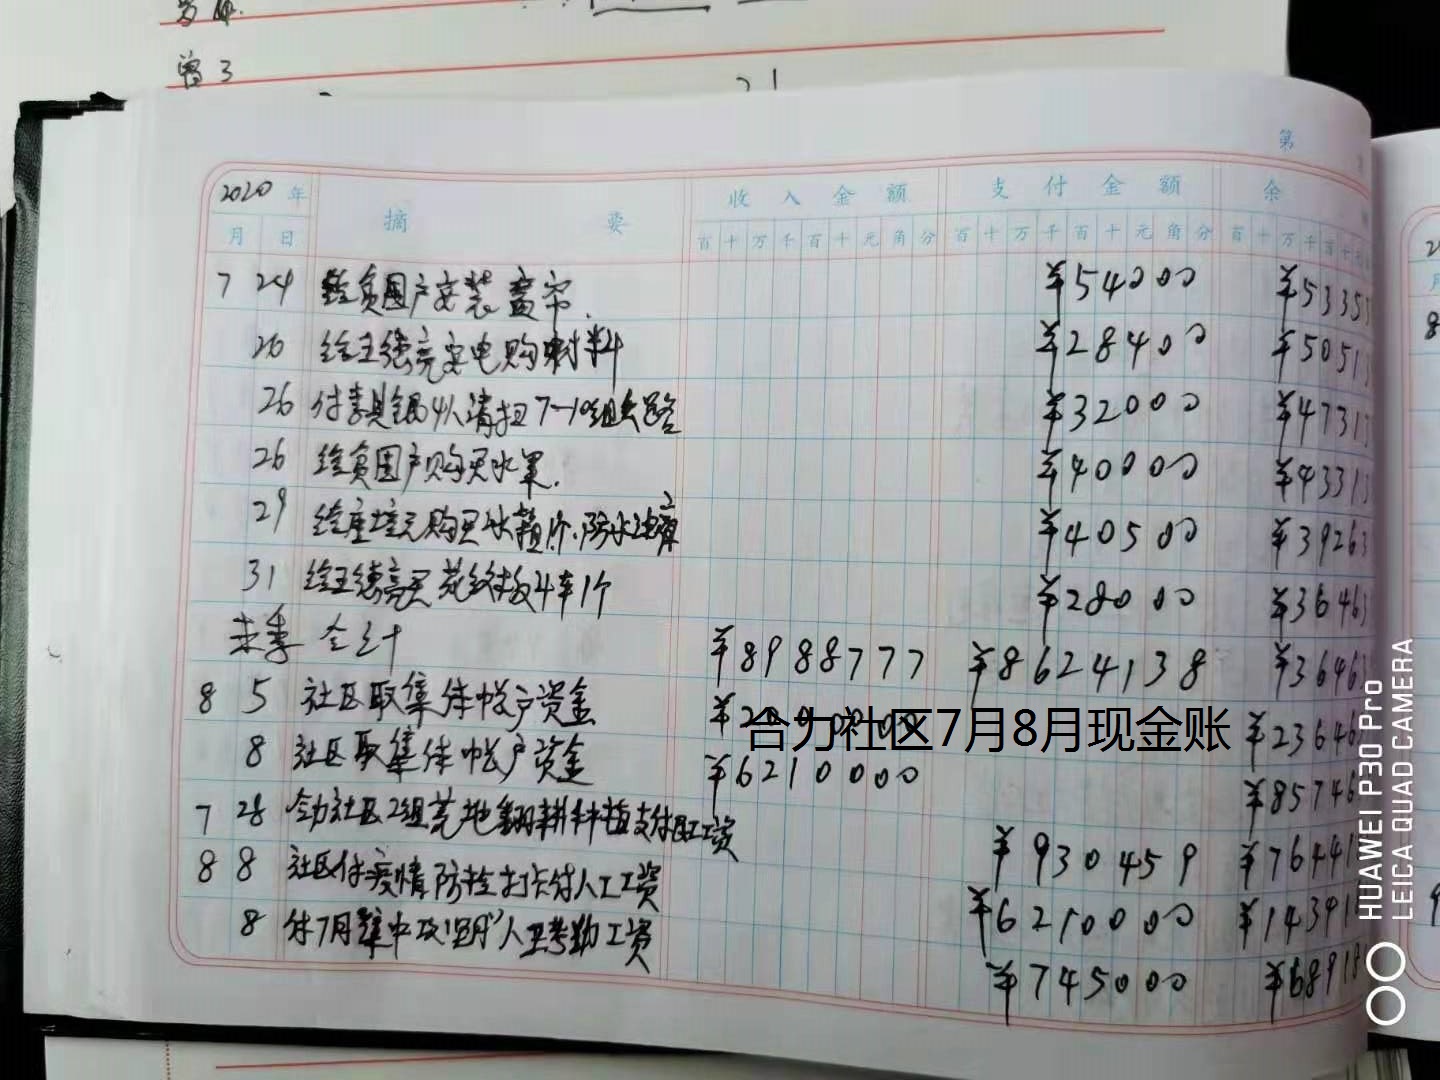 曾3
第
2020 年
摘 要 收入金额 支付金额 余
月 日 百十万千百十元角分 百十万千百十元角分 百十万千百十元
7 24 给贫困户安装窗帘. ¥54000 ¥5335
26 给王德亮安电购材料 ¥28400 ¥5051
26 付李其银4人清扫7-10组公路 ¥32000 ¥4731
26 给贫困户购买水果. ¥40000 ¥4331
29 购买水 ¥40500 ¥39263
31 给王德亮买花纹板斗车1个 ¥28000 ¥36463
本季合计 ¥8988777 ¥8624138 ¥36463
8 5 社区取集体帐户资金 ¥2000000 ¥23646
合力社区7月8月现金账
8 社区取集体帐户资金 ¥6210000 ¥85746
7 28 合力社区2组荒地翻耕种植支付民工工资 ¥930459 ¥76441
8 8 社区付疫情防控打卡付人工工资 ¥6210000 ¥14391
8 付7月集中及"四月"人卫考勤工资 ¥745000 ¥6891
HUAWEI P30 Pro
LEICA QUAD CAMERA